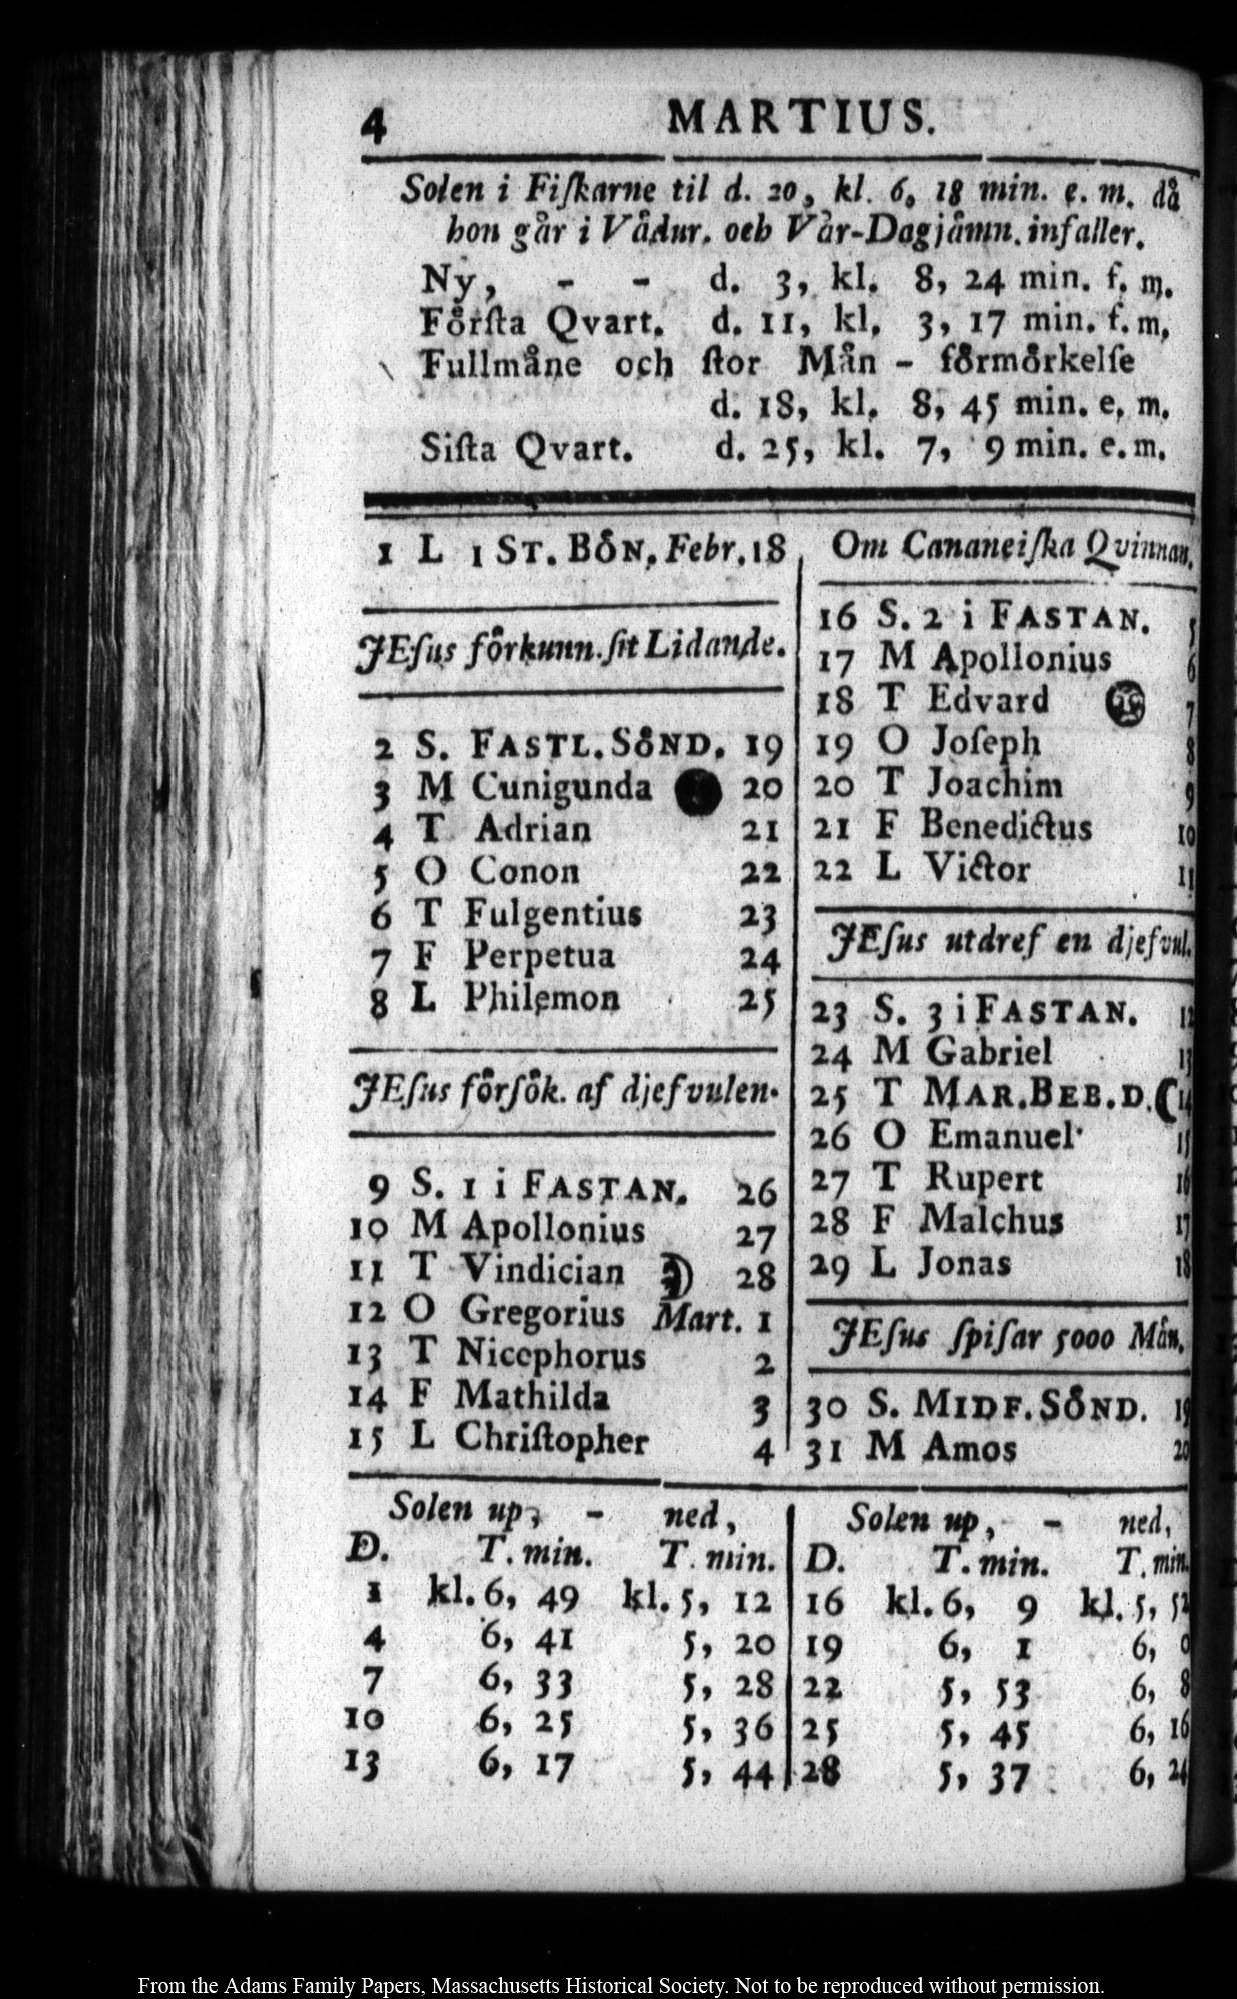 4 MARTIUS.
Solen i Fiſkarne til d. 20, kl. 6, 18 min. e. m. då
hon går i Vådur. och Vår-Dagjåmn. infaller.
Ny, - - d. 3, kl. 8, 24 min. f. m.
Fôrſta Qvart. d. 11, kl. 3, 17 min. f. m,
Fullmåne och ſtor Mån - fôrmôrkelſe
d. 18, kl. 8, 45 min. e. m.
Siſta Qvart. d. 25, kl. 7, 9 min. e. m.
1 L 1 ST. BÔN, Febr. 18
JEſus fôrkunn. ſit Lidande.
2 S. FASTL. SÔND. 19
3 M Cunigunda 20
4 T Adrian 21
5 O Conon 22
6 T Fulgentius 23
7 F Perpetua 24
8 L Philemon 25
JEſus fôrſôk. af djefvulen.
9 S. 1 i FASTAN. 26
10 M Apollonius 27
11 T Vindician 28
12 O Gregorius Mart. 1
13 T Nicephorus 2
14 F Mathilda 3
15 L Chriſtopher 4
Om Cananeiſka Qvinnan.
16 S. 2 i FASTAN. 5
17 M Apollonius 6
18 T Edvard 7
19 O Joſeph 8
20 T Joachim 9
21 F Benedictus 10
22 L Victor 11
JEſus utdref en djefvul.
23 S. 3 i FASTAN. 12
24 M Gabriel 13
25 T MAR. BEB. D. 14
26 O Emanuel 15
27 T Rupert 16
28 F Malchus 17
29 L Jonas 18
JEſus ſpiſar 5000 Mån.
30 S. MIDF. SÔND. 19
31 M Amos 20
Solen up, - ned,
D. T. min. T. min.
1 kl. 6, 49 kl. 5, 12
4 6, 41 5, 20
7 6, 33 5, 28
10 6, 25 5, 36
13 6, 17 5, 44
Solen up, - ned,
D. T. min. T. min.
16 kl. 6, 9 kl. 5, 52
19 6, 1 6, 0
22 5, 53 6, 8
25 5, 45 6, 16
28 5, 37 6, 24
From the Adams Family Papers, Massachusetts Historical Society. Not to be reproduced without permission.